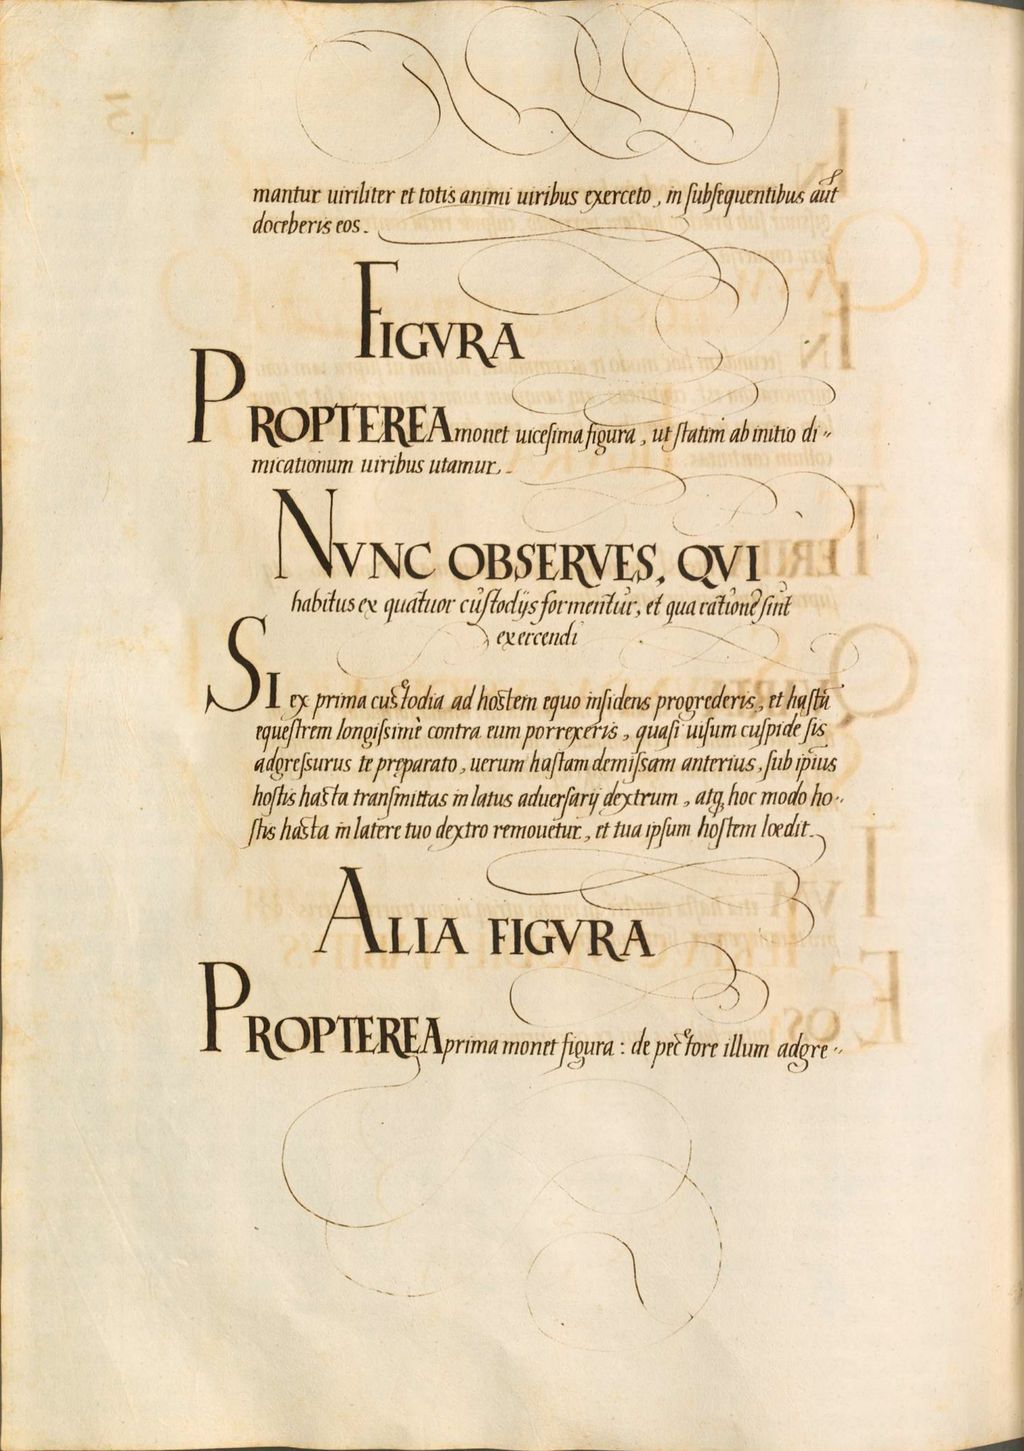 mantur uiriliter et totis animi uiribus exerceto, in subsequentibus aūt
doceberis eos.
FIGVRA
PROPTEREA monet uicesima figura, ut statim ab initio di-
micationum uiribus utamur.
NVNC OBSERVES, QVI
habitus ex quatuor custodijs formentur, et qua ratione sint
exercendi
SI ex prima custodia ad hostem equo insidens progrederis, et hastā
equestrem longissimè contra eum porrexeris, quasi uisum cuspide sis
adgressurus te pręparato, uerum hastam demissam anterius, sub ipsius
hostis hasta transmittas in latus aduersarij dextrum, atq, hoc modo ho-
stis hasta in latere tuo dextro remouetur, et tua ipsum hostem loedit.
ALIA FIGVRA
PROPTEREA prima monet figura: de pectore illum adgre-